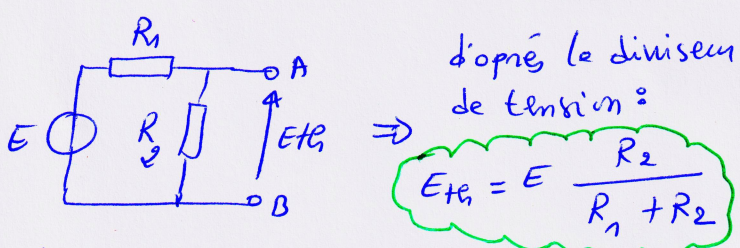 R1
A
E
R2
Eth
B
⇒
d'après le diviseur
de tension :
Eth = E R2 / (R1 + R2)